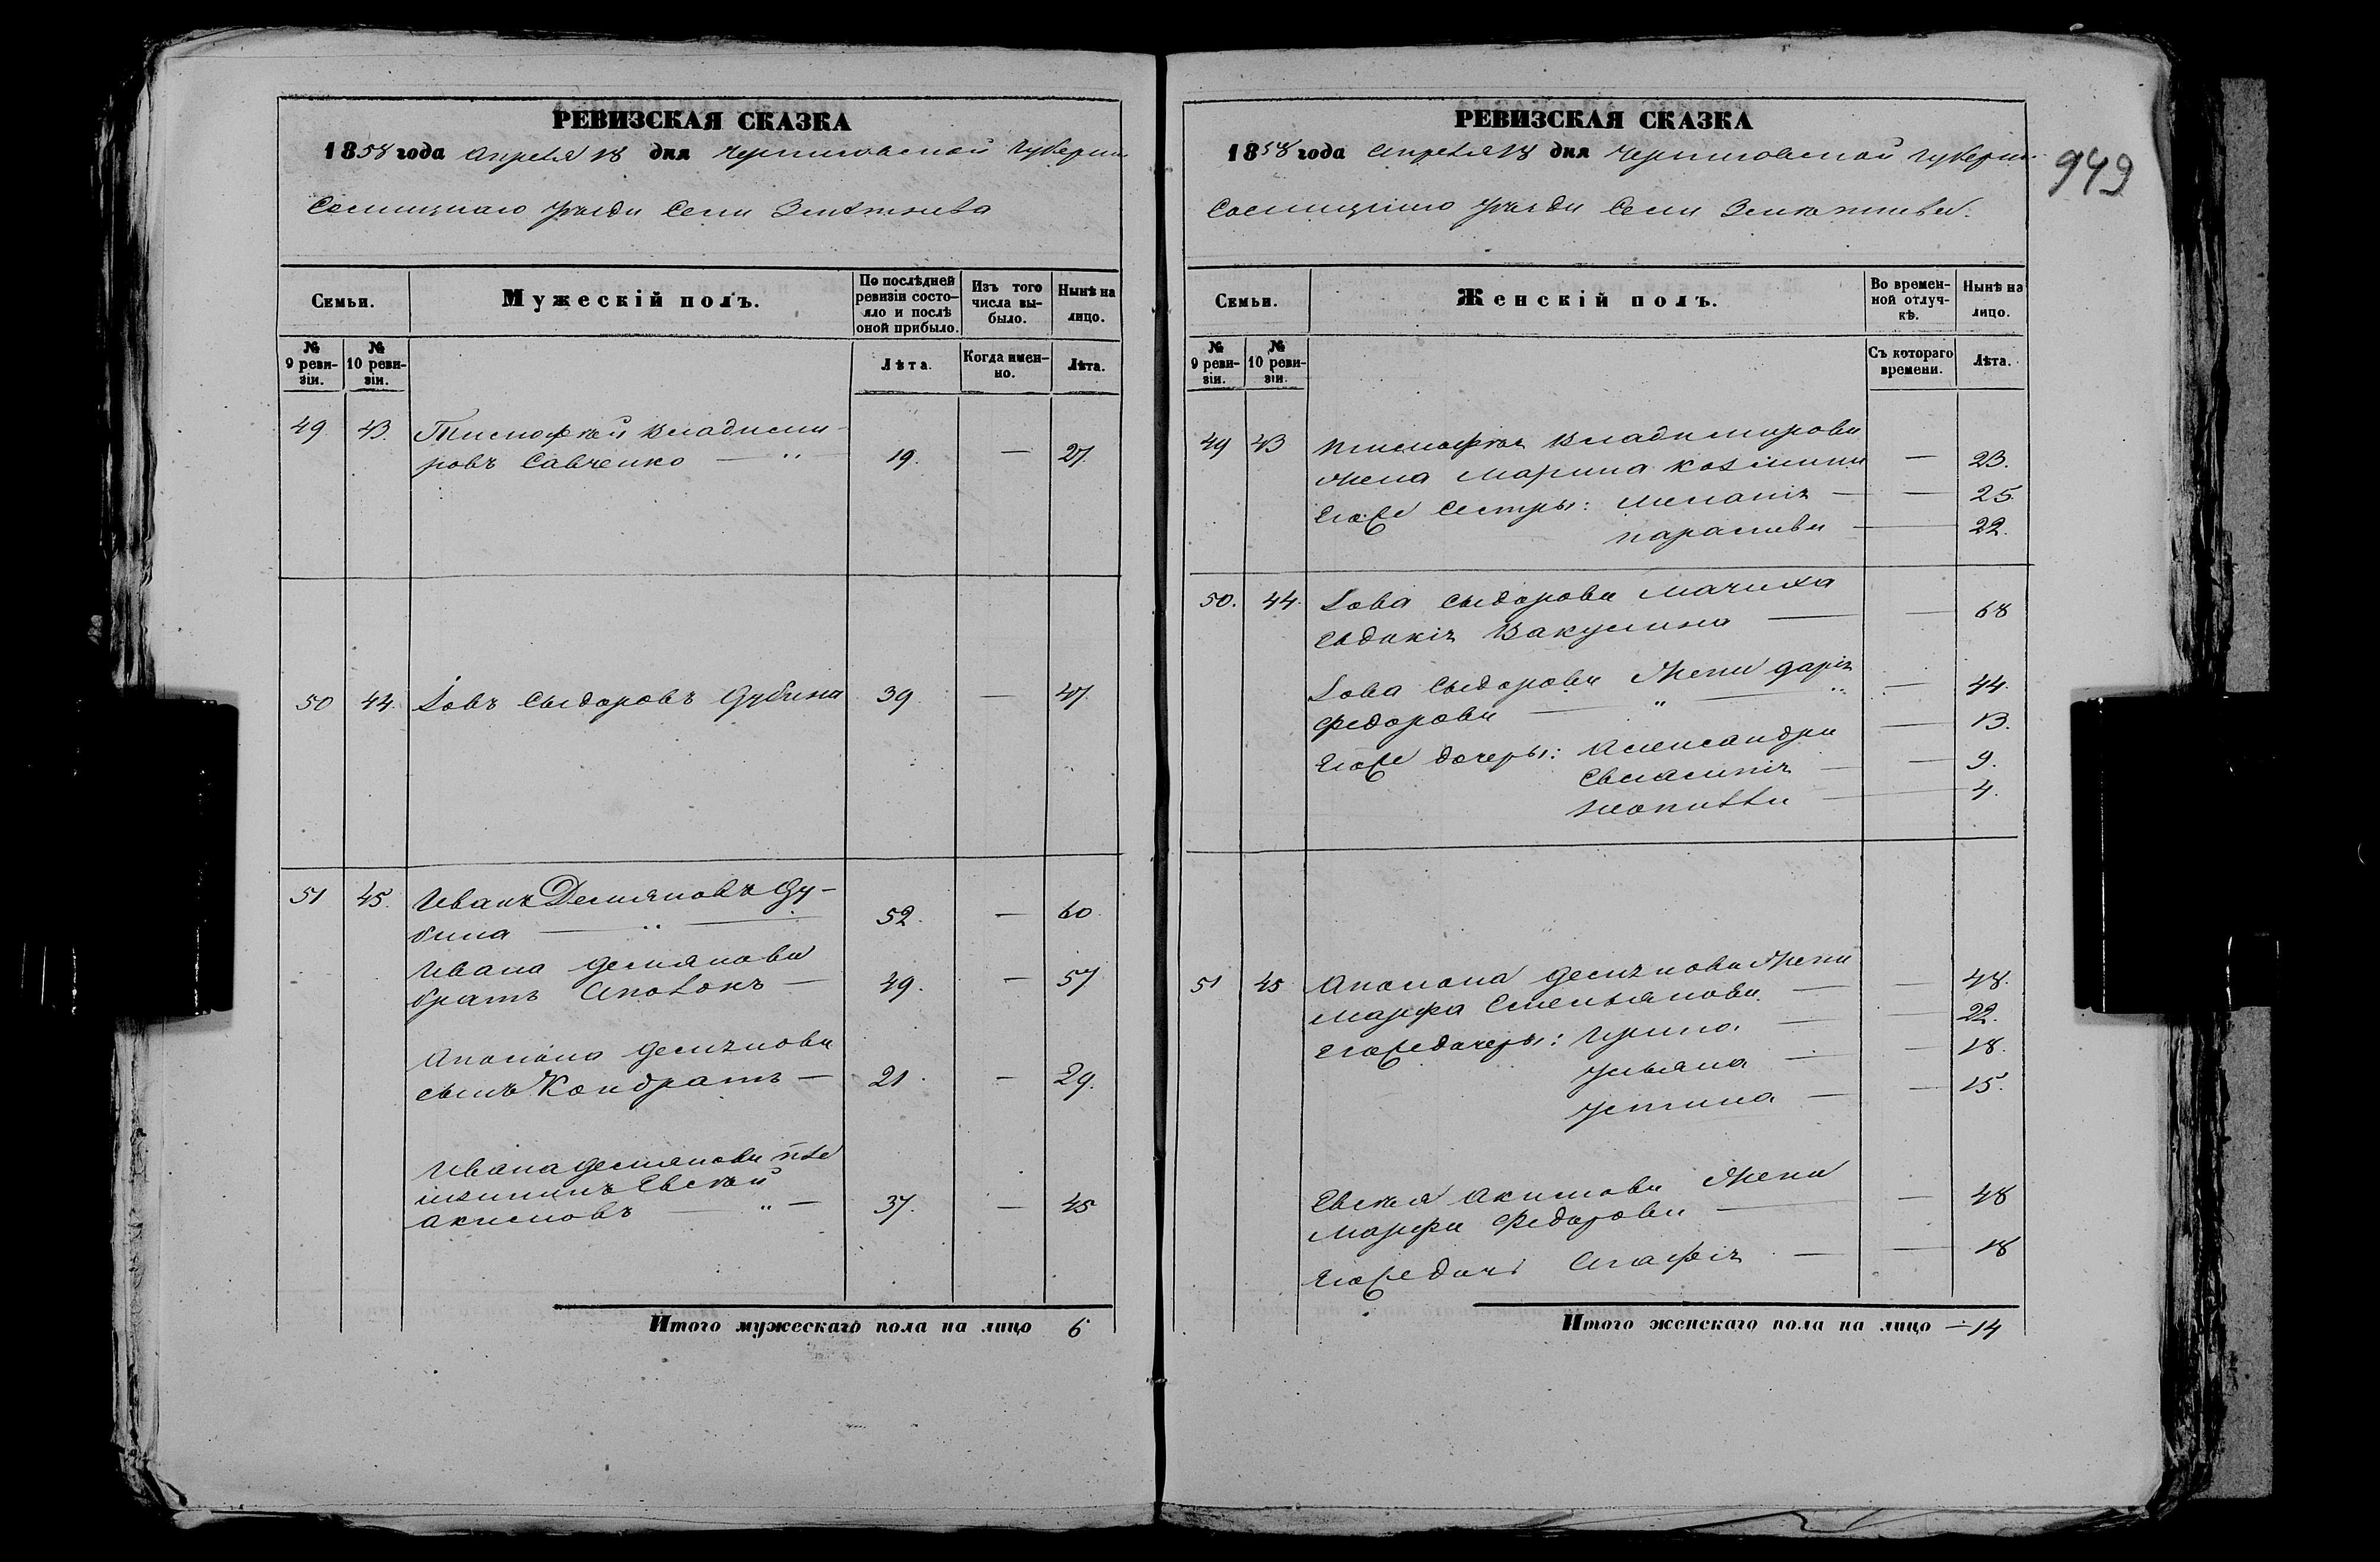 РЕВИЗСКАЯ СКАЗКА
1858 года Апреля 18 дня Черниговской Губернии
Сосницкого уезда Села
Семьи.
Мужескій полъ.
По послѣдней ревизіи состо-
яло и послѣ оной прибыло.
Изъ того числа вы-
было.
Нынѣ на лицо.
№ 9 реви-
зіи.
№ 10 реви-
зіи.
Лѣта.
Когда имен-
но.
Лѣта.
49 43. Тимофѣй Владими-
ровъ Савченко — 19. — 27.
50 44. Іовъ Сыдоровъ Дубина 39 — 47.
51 45. Иванъ Демяновъ Ду-
бина — 52. — 60.
Ивана Демянова
братъ — 49. — 57
Демянова
сынъ Кондратъ — 21. — 29.
Ивана Демянова
Евсей
Акимовъ — 37. — 45
Итого мужескаго пола на лицо 6
РЕВИЗСКАЯ СКАЗКА
1858 года Апреля 18 дня Черниговской Губернии
Сосницкого уезда Села
949
Семьи.
Женскій полъ.
Во времен-
ной отлуч-
кѣ.
Нынѣ на лицо.
№ 9 реви-
зіи.
№ 10 реви-
зіи.
Съ котораго времени.
Лѣта.
49 43 Тимофея Владимирова
жена Марина — 23.
Его же Сестры: Меланія — 25.
Параскева — 22.
50. 44. Іова Сыдорова мачиха
Евдокія Вакулина — 68
Іова Сыдорова жена Дарія
Федорова — 44.
Его же дочеры: Александра — 13.
— 9.
— 4.
51 45 Демянова жена
Марфа Емельянова — 48.
Его же дочеры: Ирина — 22.
Ульяна — 18.
Устина — 15.
Евсея Акимова жена
Марфа Федорова — 48
Его же дочь Агафія — 18
Итого женскаго пола на лицо — 14